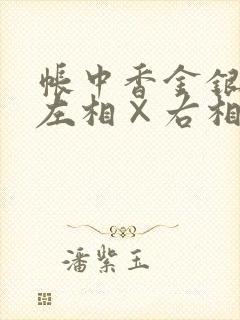 帐中香金银
左相×右相
潘紫玉